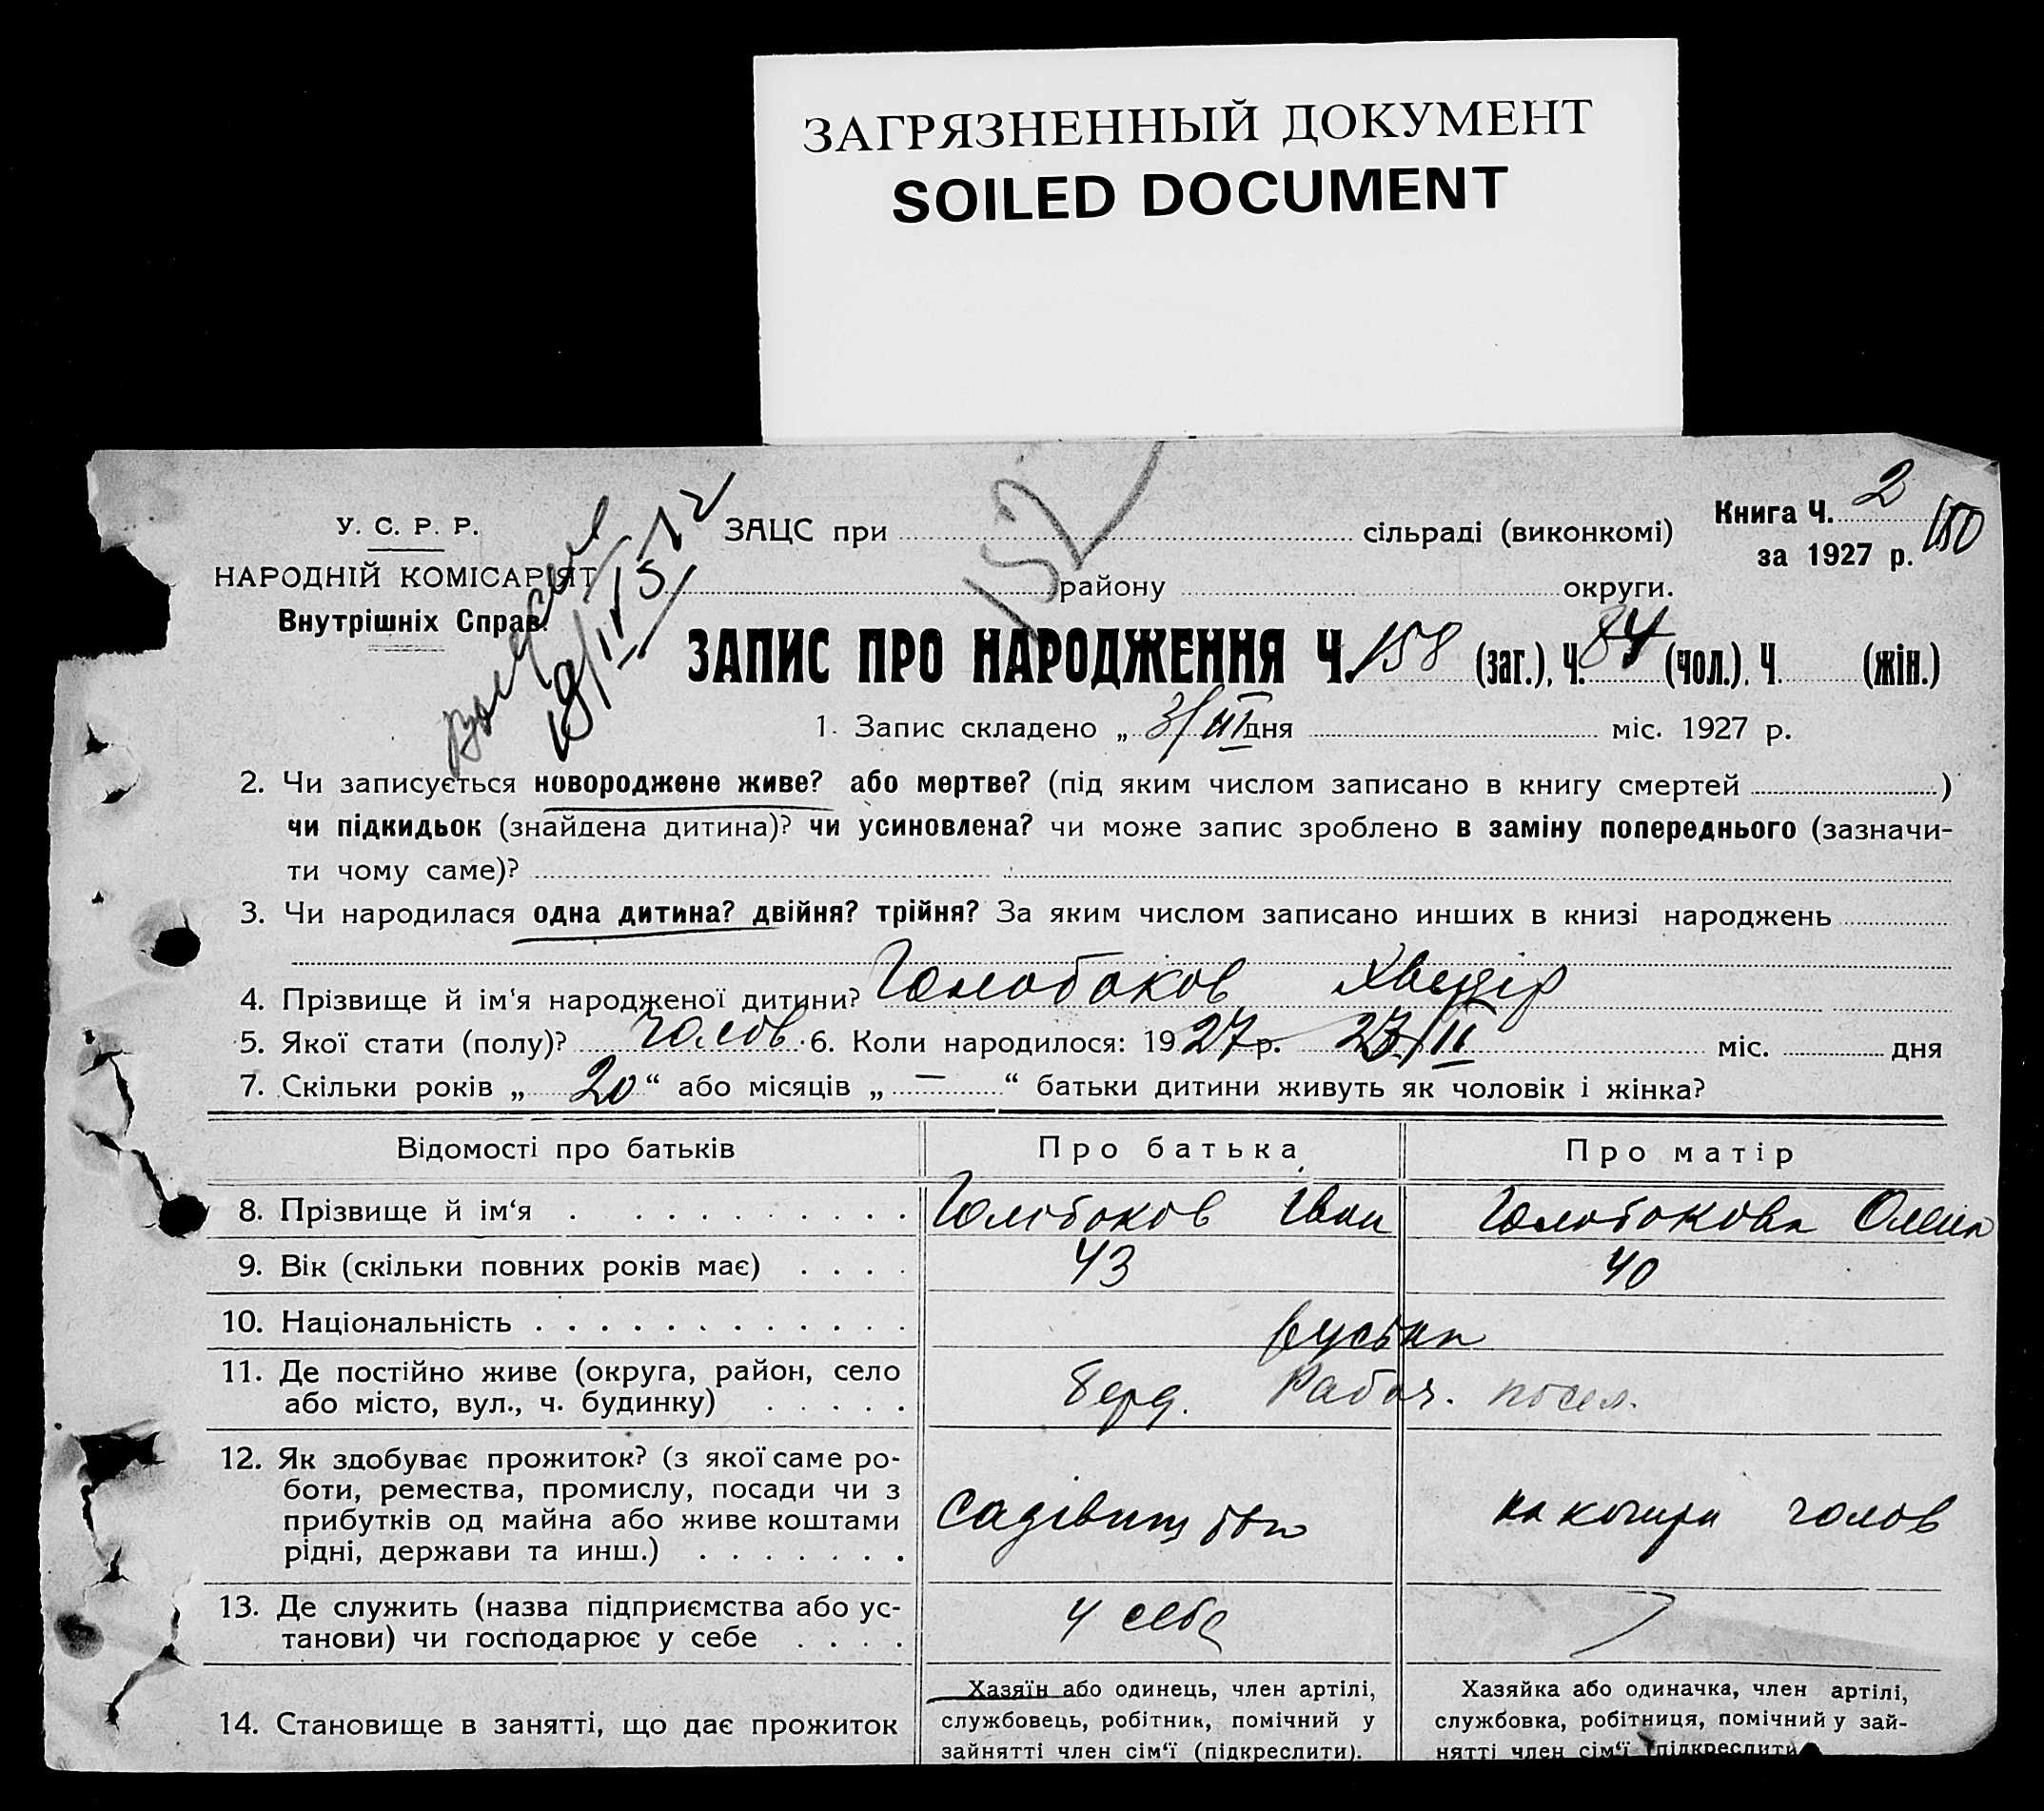 ЗАГРЯЗНЕННЫЙ ДОКУМЕНТ
SOILED DOCUMENT
Книга Ч. 2
150
за 1927 р.
У. С. Р. Р.
НАРОДНІЙ КОМІСАРІЯТ
Внутрішніх Справ.
152
ЗАЦС при сільраді (виконкомі)
району округи.
ЗАПИС ПРО НАРОДЖЕННЯ Ч. 158 (заг.), Ч. 84 (чол.), Ч. (жін.)
1. Запис складено „ 3/III дня міс. 1927 р.
2. Чи записується новороджене живе? або мертве? (під яким числом записано в книгу смертей )
чи підкидьок (знайдена дитина)? чи усиновлена? чи може запис зроблено в заміну попереднього (зазначи-
ти чому саме)?
3. Чи народилася одна дитина? двійня? трійня? За яким числом записано инших в книзі народжень
4. Прізвище й ім'я народженої дитини? Голобоков Хведір
5. Якої стати (полу)? чолов. 6. Коли народилося: 1927 р. 23/II міс. дня
7. Скільки років „ 20 “ або місяців „ — “ батьки дитини живуть як чоловік і жінка?
Відомості про батьків Про батька Про матір
8. Прізвище й ім‘я Голобоков Іван Голобокова Олена
9. Вік (скільки повних років має) 43 40
10. Національність
11. Де постійно живе (округа, район, село
або місто, вул., ч. будинку) Берд. Рабоч. посел.
12. Як здобуває прожиток? (з якої саме ро-
боти, ремества, промислу, посади чи з
прибутків од майна або живе коштами
рідні, держави та инш.) садівництво на кошти чолов
13. Де служить (назва підприємства або ус-
танови) чи господарює у себе у себе
14. Становище в занятті, що дає прожиток
Хазяїн або одинець, член артілі,
службовець, робітник, помічний у
зайнятті член сім‘ї (підкреслити).
Хазяйка або одиначка, член артілі,
службовка, робітниця, помічний у зай-
нятті член сім‘ї (підкреслити